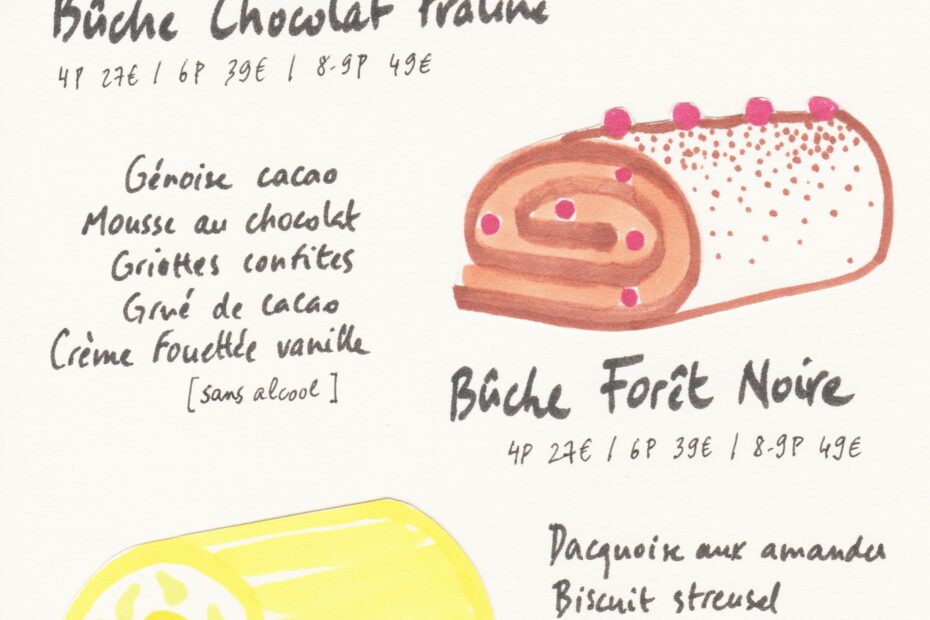 Bûche Chocolat Praliné
4P 27€ / 6P 39€ / 8-9P 49€
Génoise cacao
Mousse au chocolat
Griottes confites
Grué de cacao
Crème Fouettée vanille
[sans alcool]
Bûche Forêt Noire
4P 27€ / 6P 39€ / 8-9P 49€
Dacquoise aux amandes
Biscuit streusel